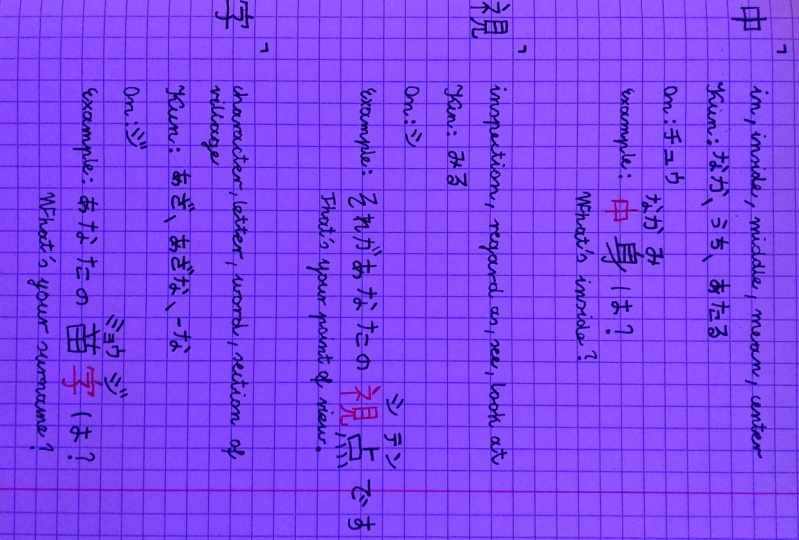 中, in, inside, middle, mean, center
Kun: なか、うち、あたる
On: チュウ
なかみ
example: 中身は?
What's inside?
視, inspection, regard as, see, look at
Kun: みる
On: シ
シテン
example: それがあなたの視点です
That's your point of view.
字, character, letter, word, section of
village
Kun: あざ、あざな、-な
On: ジ
ミョウジ
example: あなたの苗字は?
What's your surname?